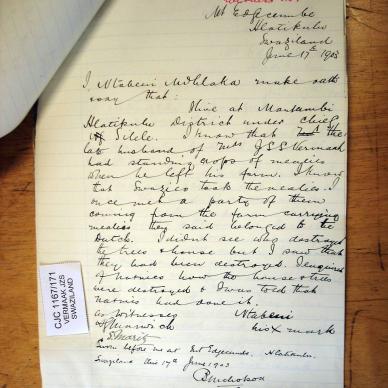 Mt Edgecumbe
Hlatikulu
Swaziland
June 17th 1903
I, Ntabeni Mdhlaka make oath
& say that:
I live at Mantambi
Hlatikulu District under Chief
Silele. I know that the
late husband of Mrs J S S Vermaak
had standing crops of mealies
when he left his farm. I know
that Swazies took the mealies. I
once met a party of them
coming from the farm carrying
mealies they said belonged to the
Dutch. I didnt see who destroyed
the trees & house but I saw that
they had been destroyed. I enquired
of natives how the house & trees
were destroyed & I was told that
natives had done it.
As Witnesses
Ntabeni
his X mark
Sworn before me at Mt Edgecumbe, Hlatikulu.
Swaziland this 17th June 1903
CJC 1167/171
VERMAAK JZS
SWAZILAND